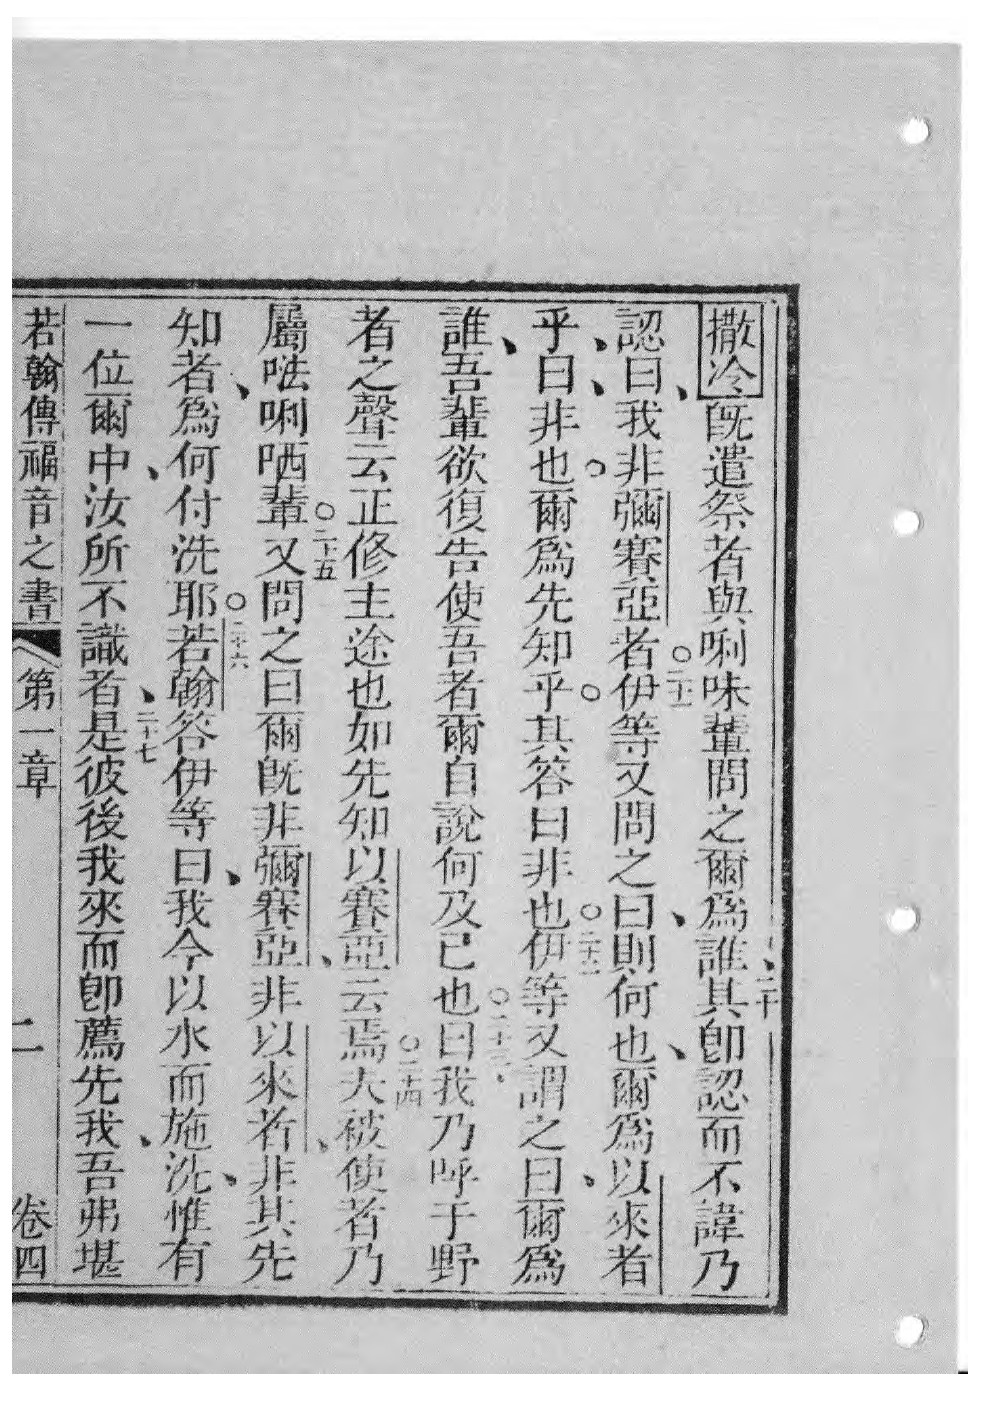 撒冷既遣祭者與唎味輩問之爾爲誰、二十其卽認而不諱乃
認曰、我非彌賽亞者○二十一伊等又問之曰、則何也、爾爲以來者
乎、曰、非也○爾爲先知乎○其答曰非也○二十二伊等又謂之曰、爾爲
誰、吾輩欲復告使吾者爾自說何及已也○二十三曰、我乃呼于野
者之聲云正修主途也如先知以賽亞云焉○二十四夫被使者乃
屬𠵽唎哂輩○二十五又問之曰爾既非彌賽亞、非以來者、非其先
知者、爲何付洗耶○二十六若翰答伊等曰、我今以水而施洗、惟有
一位爾中、汝所不識者、二十七是彼後我來而卽薦先我、吾弗堪
若翰傳福音之書 第一章 二 卷四